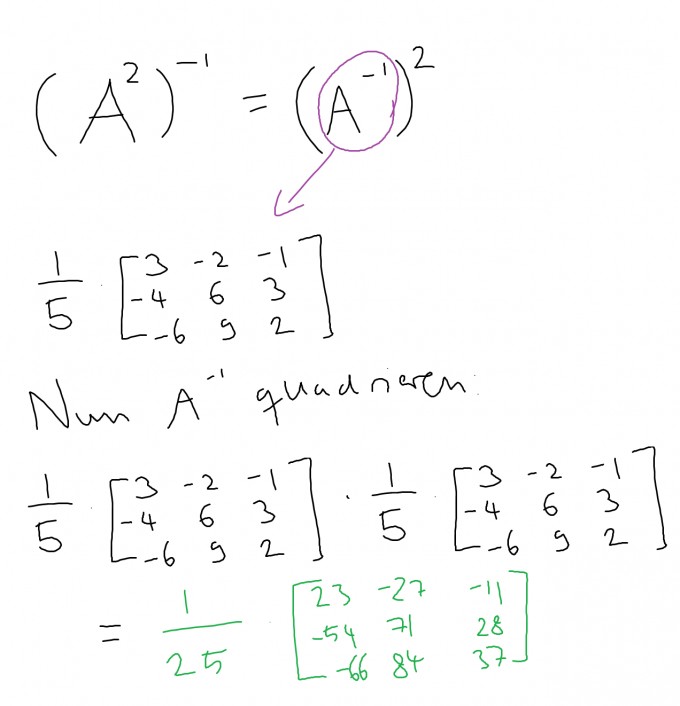 (A²)⁻¹ = (A⁻¹)²
1/5 · [3 -2 -1
-4 6 3
-6 9 2]
Nun A⁻¹ quadrieren:
1/5 · [3 -2 -1
-4 6 3
-6 9 2] · 1/5 · [3 -2 -1
-4 6 3
-6 9 2]
= 1/25 · [23 -27 -11
-54 71 28
-66 84 37]